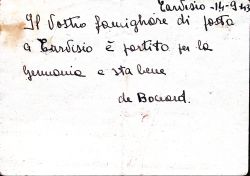 Tarvisio - 14-9-43
Il Vostro famigliare di posta
a Tarvisio è partito per la
Germania e sta bene
de